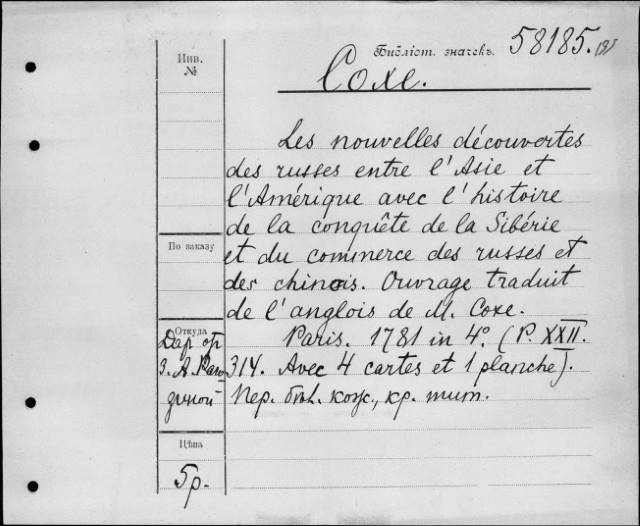 Библіот. значекъ. 58185.
Инв. №
Coxe.
Les nouvelles découvertes
des russes entre l'Asie et
l'Amérique avec l'histoire
de la conquête de la Sibérie
По заказу
et du commerce des russes et
des chinois. Ouvrage traduit
de l'anglois de M. Coxe.
Откуда
Paris. 1781 in 4°. (P. XXII.
314. Avec 4 cartes et 1 planche).
Пер. кож., кр. тит.
Даръ
З. А. Рагозиной
Цѣна
5р.